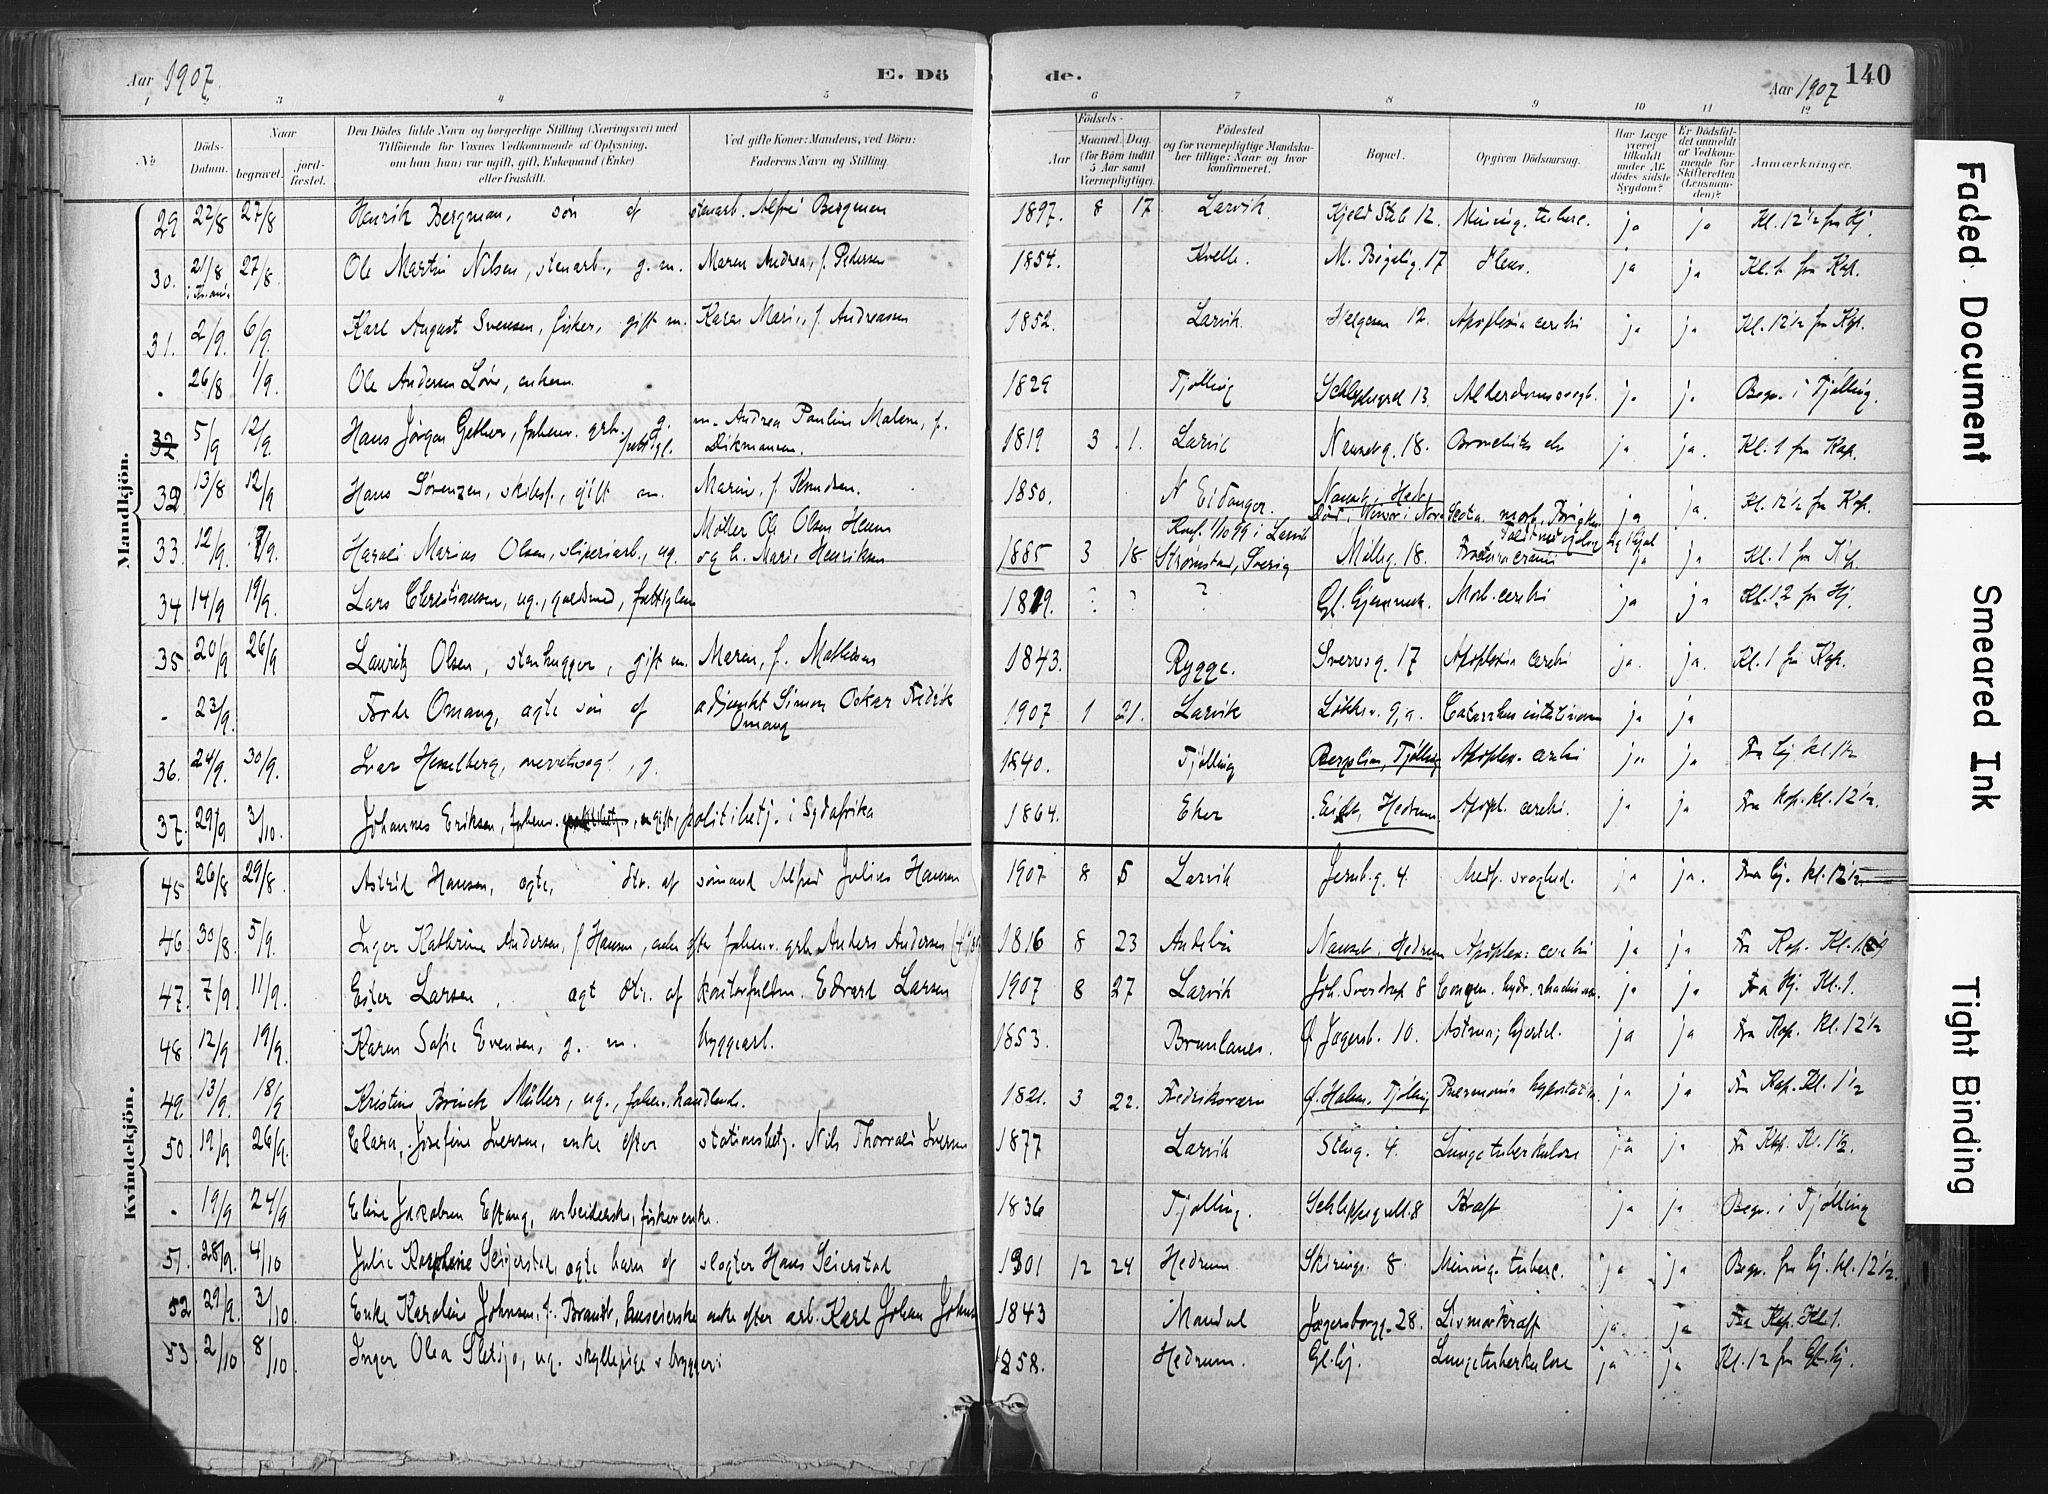 Aar 1907
E. Dö
de.
Aar 1907
140
3 4 5 6 7 8 9 10 11 12
No
Döds-Datum.
Naar
begravet.
jord-fæstet.
Den Dödes fulde Navn og borgerlige Stilling (Næringsvei) med Tilföiende for Voxnes Vedkommende af Oplysning, om han (hun) var ugift, gift, Enkemand (Enke) eller fraskilt.
Ved gifte Koner: Mandens, ved Börn: Faderens Navn og Stilling.
Födsels-
Aar
Maaned. Dag.
(for Börn indtil 5 Aar samt Værnepligtige).
Födested og for værnepligtige Mandskaber tillige: Naar og hvor konfirmeret.
Bopæl.
Opgiven Dödsaarsag.
Har Læge været tilkaldt under Afdödes sidste Sygdom?
Er Dödsfaldet anmeldt af Vedkommende for Skifteretten (Lensmanden)?
Anmærkninger.
Mandkjön.
29 22/8 27/8 Henrik Bergman, sön af stenarb. Alfred Bergman 1897 8 17 Larvik Kjeld Stubs 12. Mening. tuberc. ja ja Kl. 12 1/2 fra Hj.
30. 21/8 27/8 Ole Martin Nilsen, stenarb., g. m. Maren Andrea, f. Pedersen 1854. Kvelle. M. Bögelig. 17 Ileus. ja ja Kl. 1 fra Kap.
31. 2/9. 6/9. Karl August Svensen, fisker, gift m. Karen Marie, f. Andreasen 1852. Larvik. 12. Apoplexia cerebri ja ja Kl. 12 1/2 fra Kap.
. 26/8 1/9. Ole Andersen Löve, enkem. 1829 Tjölling 13. Alderdomssvagh. ja ja Begr. i Tjölling.
32 5/9 12/9. Hans Jörgen Gether, forhenv. g. m. Andrea Pauline Malene, f. Dikmansen. 1819 3 1. Larvik 18. Bronchitis ja ja. Kl. 1 fra Kap.
32 13/8 12/9 Hans Sörensen, skibsf., gift m. Marie, f. Knudsen. 1850. N Eidanger. Nanset, Hedr. ja ja. Kl. 12 1/2 fra Kap.
33. 12/9. Harald Marius Olsen, sliperiarb., ug. Möller Ole Olsen og h. Marie Henriksen 1885 3 18 Konf. 1/10 99 i Larvik Strömstad, Sverig Mölleg. 18. Fractura cranii ja ja Kl. 1 fra
34 14/9 19/9. Lars Christiansen, ug., fattiglem 1819. ? ? ? Gl. Morb. cerebri ja ja Kl. 12 fra Hj.
35 20/9 26/9 Lauritz Olsen, stenhugger, gift m. Maren, f. Mathisen 1843. Rygge. Sverresg. 17 Apoplexia cerebri ja. ja. Kl. 1 fra Kap.
. 23/9. Frode Omang, ægte sön af adjunkt Simon Oskar Fredrik Omang 1907 1 21. Larvik 9a. Catarrhus intestinorum ja ja
36. 24/9. 30/9. Ivar Hesselberg, g. 1840. Tjölling Tjölling Apoplex. cerebri ja ja Fra Hj kl. 1 1/2
37. 29/9 3/10. Johannes Eriksen, forhenv. ugift, politibetj. i Sydafrika 1864. Eker Hedrum Apopl. cerebri ja ja Fra Kap. kl. 12 1/2.
Kvindekjön.
45 26/8 29/8. Astrid Hansen, ægte, dtr. af sömand Alfred Julius Hansen 1907 8 5 Larvik Jernb.g. 4. Medf. svaghed. ja ja. Fra hj. kl. 12 1/2
46. 30/8. 5/9. Inger Kathrine Andersen, f Hansen, enke efter forhenv. grb. Anders Andersen 1816 8 23 Andebu Nanset, Hedrum Apoplex. cerebri ja ja Fra Kap. Kl.
47. 7/9. 11/9. Ester Larsen, ægt dtr. af kontorfuldm. Edvard Larsen 1907 8 27 Larvik Joh. Sverdrup 8 ja ja Fra Hj. Kl. 1.
48 12/9 19/9. Karen Sofie Evensen, g. m. byggearb. 1853. Brunlanes. Ø Jægersb. 10. Astma; hjertef. ja ja Fra Kap. Kl. 12 1/2
49. 13/9. 18/9 Kristine Brinck Müller, ug., forhenv. handlende. 1821. 3 22. Fredriksværn Ø. Halsen, Tjölling Pneumonia hypostatica. ja ja Fra Kap. Kl. 1 1/2
50. 19/9 26/9. Clara Josefine Iversen, enke efter stationsbetj. Nils Thorvald Iversen 1877 Larvik Steng. 4. Lungetuberkulose ja ja Fra Kap. Kl. 1 1/2.
. 19/9 24/9 Eline Jakobsen Eftang, arbeiderske, fiskerenke. 1836 Tjölling. Schleppegrell. 8 Kræft ja ja Begr. i Tjölling
51. 28/9. 4/10 Julie Josephine Seigerstad, ægte barn af slagter Hans Seierstad 1901 12 24 Hedrum Skiringss. 8. Mening. tuberc. ja ja Begr. fra hj. kl. 12 1/2.
52 29/9. 3/10. Enke Karoline Johnsen, f. Brandt, huseierske enke efter arb. Karl Johan Johnsen 1843 Mandal Jægersborgg. 28. Livmorkræft ja. ja Fra Kap. Kl 1.
53. 2/10 8/10 Inger Olea Sletsjø, ug. skyllepige v bryggeri 1858. Hedrum. Gl.hj. Lungetuberkulose ja ja Kl. 12 fra Gl. hj.
Faded Document
Smeared Ink
Tight Binding